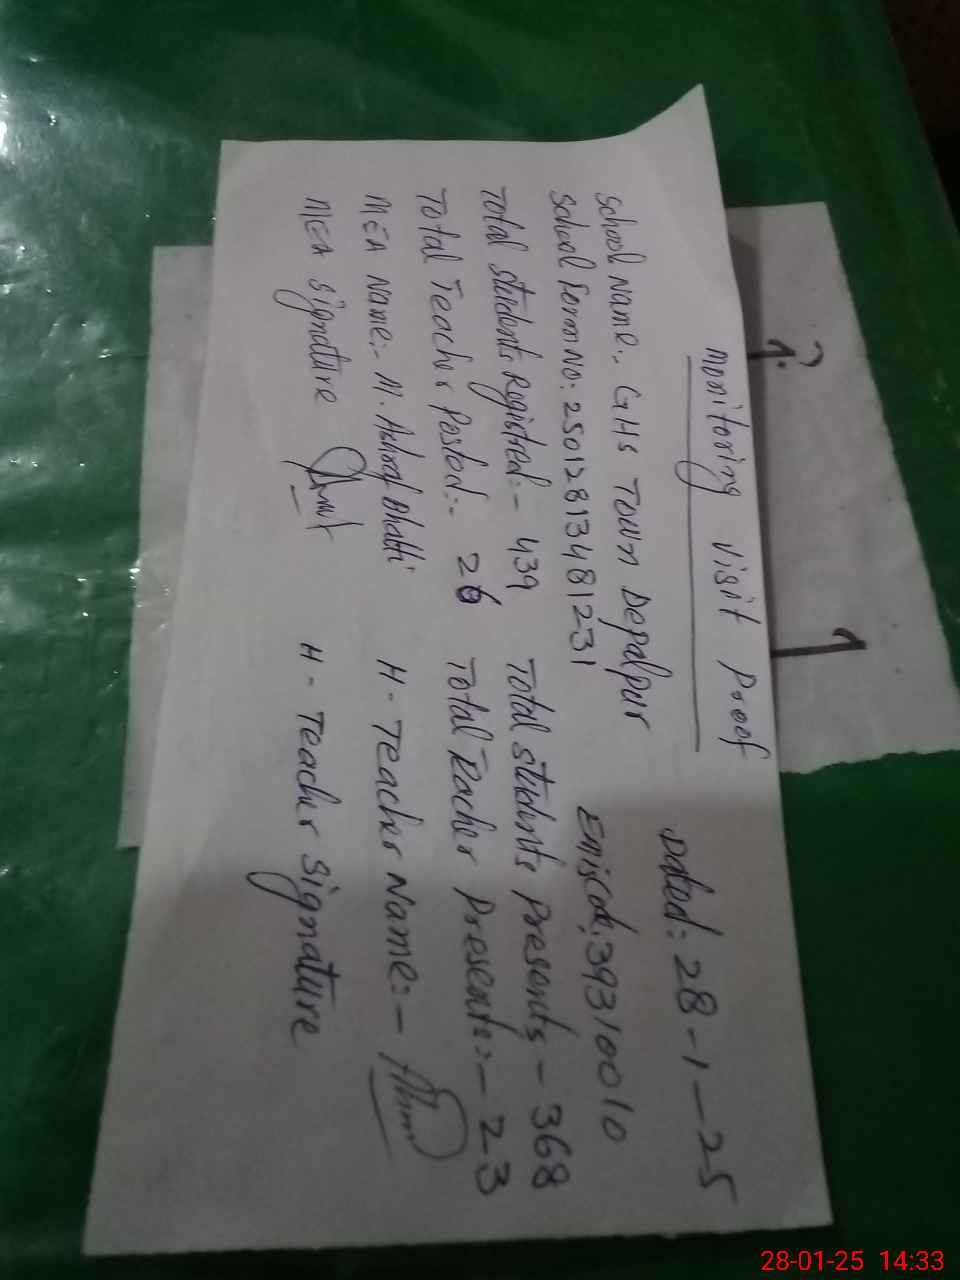 Monitoring visit Proof
Dated: 28-1-25
School Name:- GHS TOWN Depalpur
Emiscode: 39310010
School form No: 25012813481231
Total students Registred:- 439 Total students Presents - 368
Total Teacher Posted:- 26 Total Teacher Presents:- 23
MEA Name:- M. Ashraf Bhatti H-Teacher Name:-
MEA Signature H-Teacher Signature
?
1:
1
28-01-25 14:33